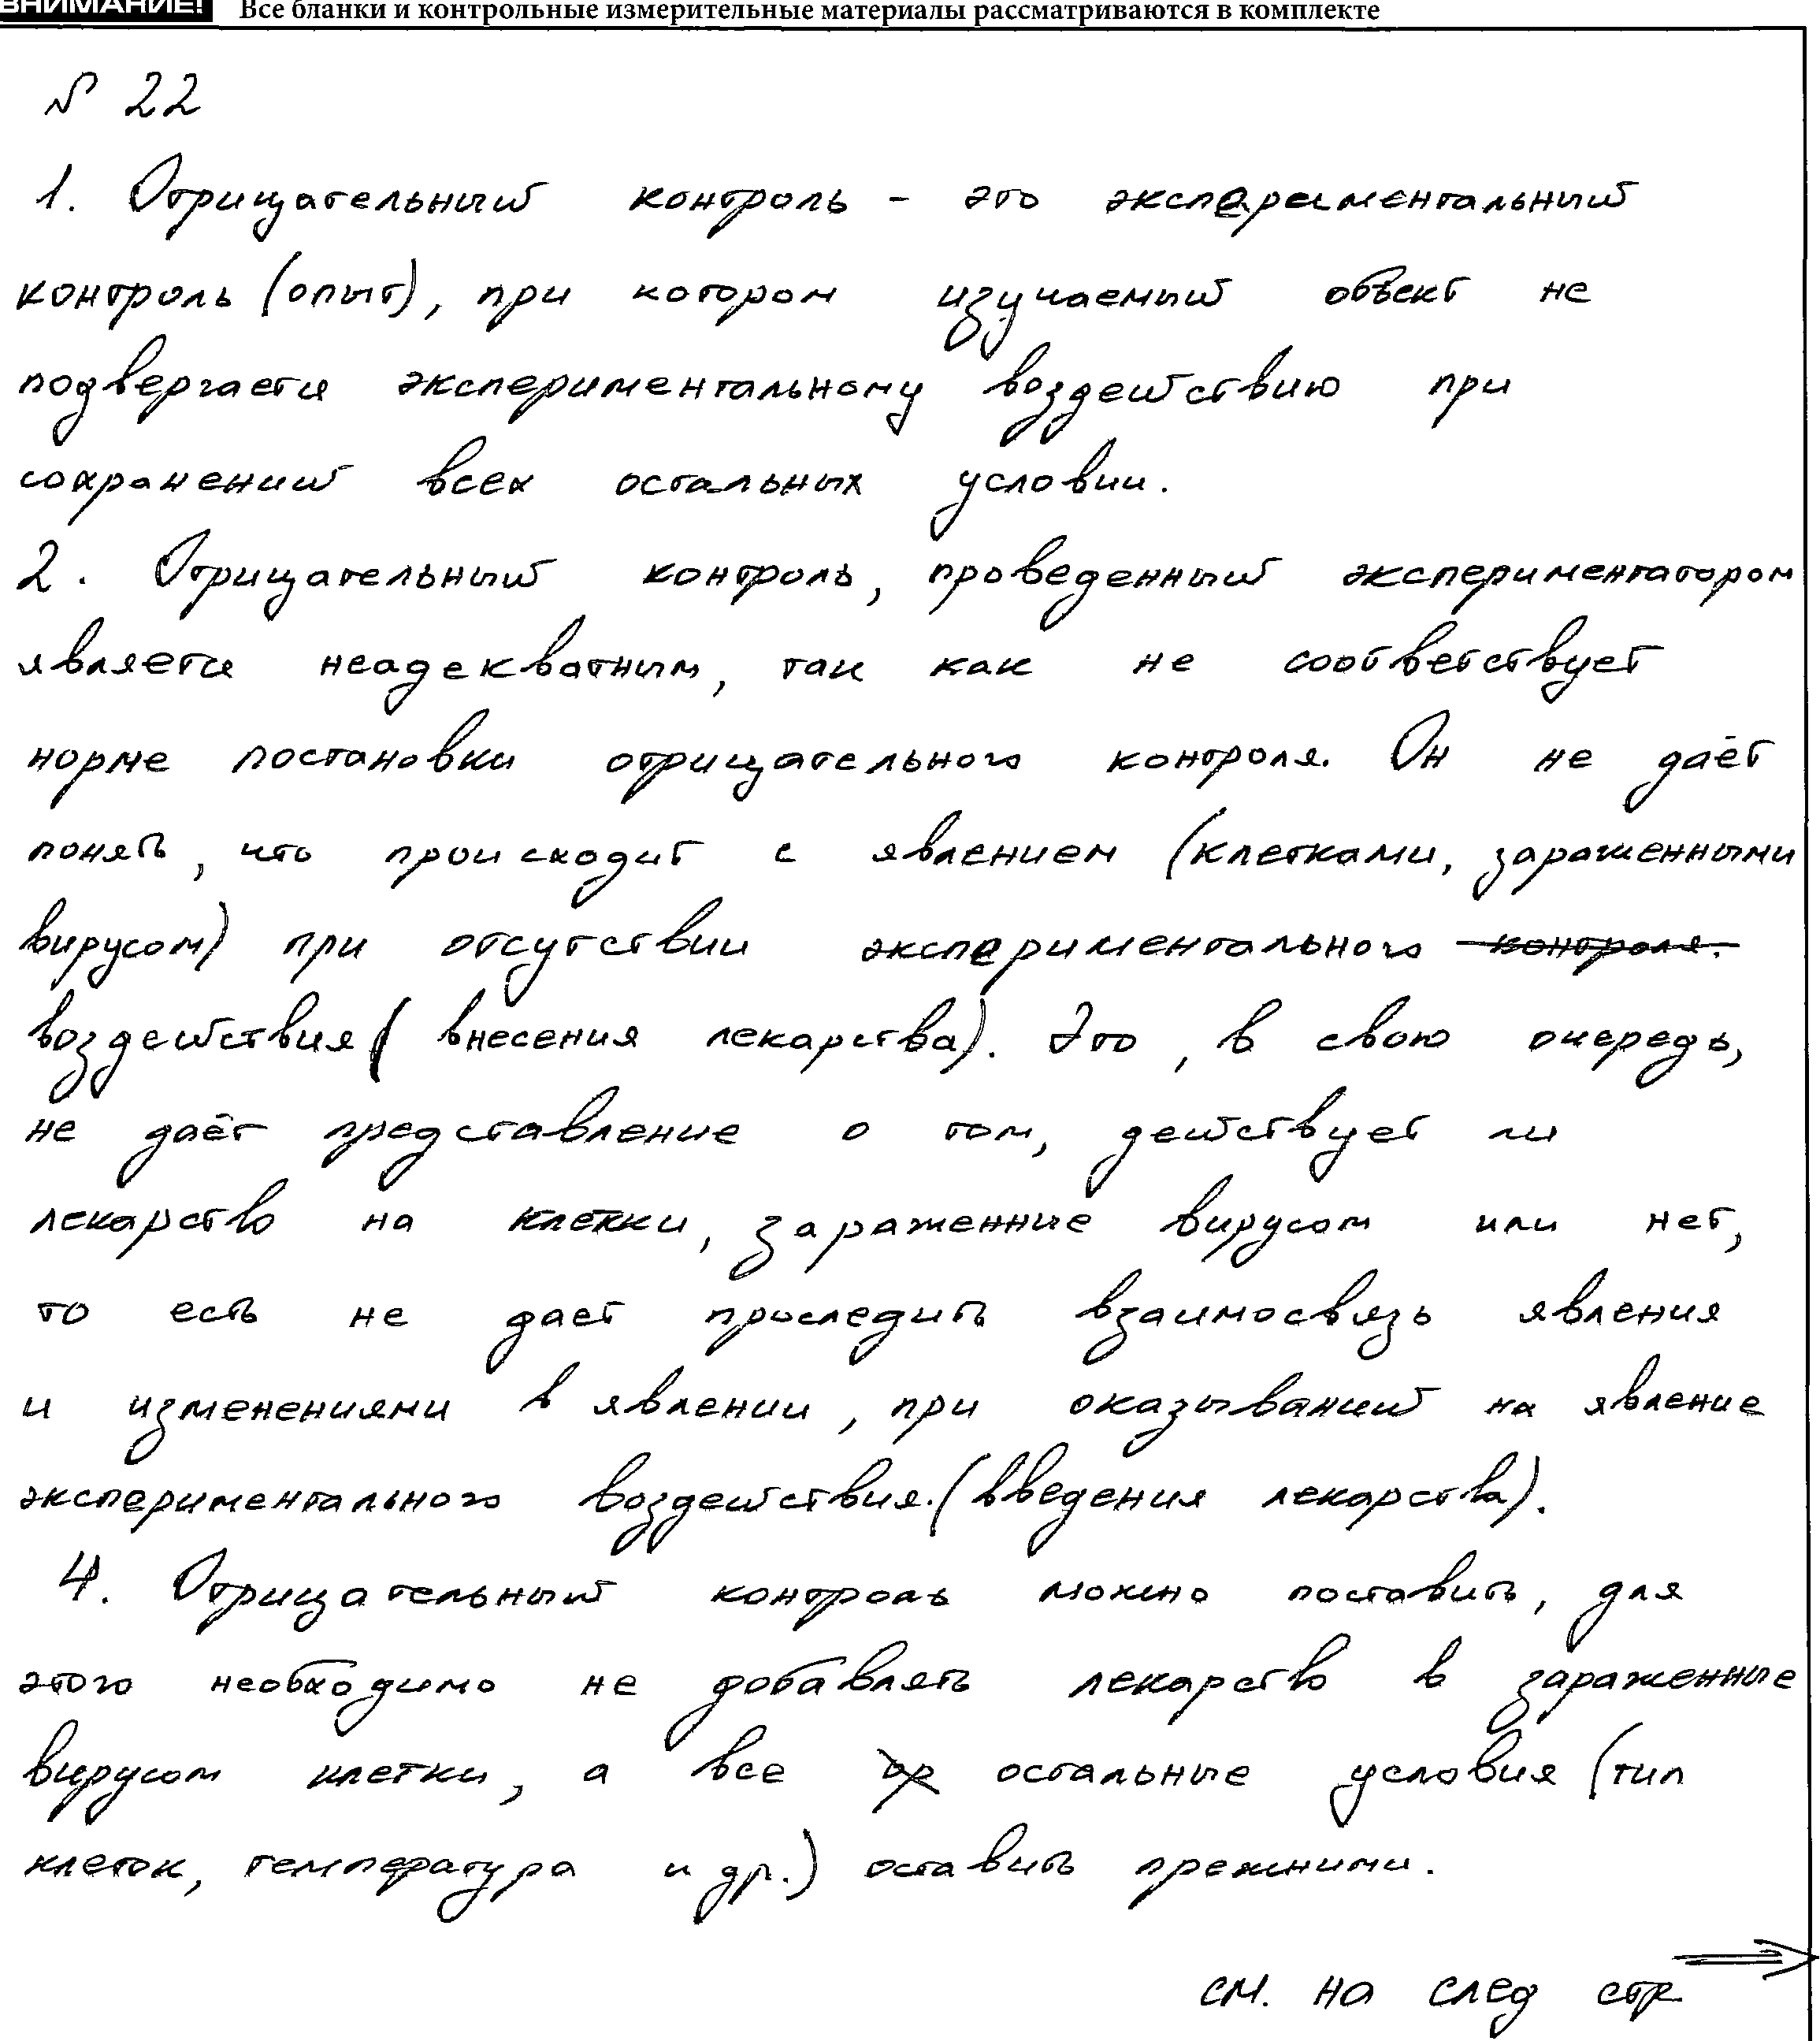 ВНИМАНИЕ! Все бланки и контрольные измерительные материалы рассматриваются в комплекте
№ 22
1. Отрицательный контроль - это экспериментальный
контроль (опыт), при котором изучаемый объект не
подвергается экспериментальному воздействию при
сохранений всех остальных условии.
2. Отрицательный контроль, проведенный экспериментатором
является неадекватным, так как не соответствует
норме постановки отрицательного контроля. Он не даёт
понять, что происходит с явлением (клетками, зараженными
вирусом) при отсутствии экспериментального контроля.
воздействия (внесения лекарства). Это, в свою очередь,
не даёт представление о том, действует ли
лекарство на клетки, зараженные вирусом или нет,
то есть не дает проследить взаимосвязь явления
и изменениями в явлении, при оказываний на явление
экспериментального воздействия.(введения лекарства).
4. Отрицательный контроль можно поставить, для
этого необходимо не добавлять лекарство в зараженные
вирусом клетки, а все остальные условия (тип
клеток, температура и др.) оставить прежними.
см. на след стр